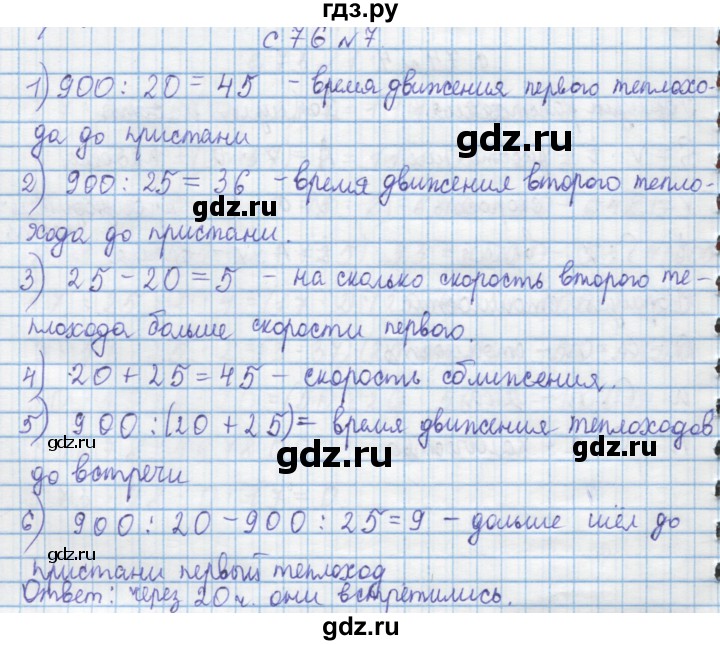 гдз.ру
с 76 №7
1) 900 : 20 = 45 - время движения первого теплохо-
да до пристани
gdz.ru
2) 900 : 25 = 36 - время движения второго тепло-
gdz.ru
хода до пристани.
3) 25 - 20 = 5 - на сколько скорость второго те-
плохода больше скорости первого.
gdz.ru
4) 20 + 25 = 45 - скорость сближения.
5) 900 : (20 + 25) = - время движения теплоходов
gdz.ru
gdz.ru
gdz.ru
до встречи
6) 900 : 20 - 900 : 25 = 9 - дольше шёл до
gdz.ru
пристани первый теплоход
gdz.ru
Ответ: через 20 ч. они встретились.
gdz.ru